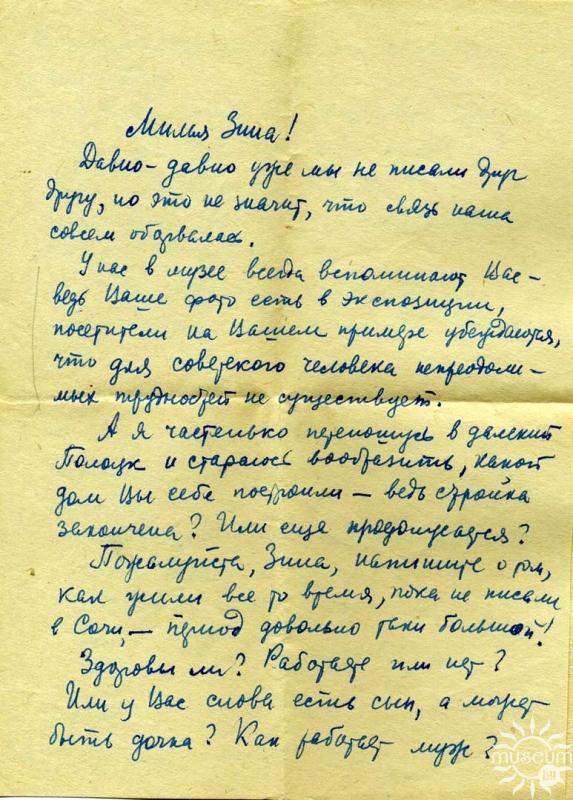 Милая Зина!
Давно-давно уже мы не писали друг
другу, но это не значит, что связь наша
совсем оборвалась.
У нас в музее всегда вспоминают Вас –
ведь Ваше фото есть в экспозиции,
посетители на Вашем примере убеждаются,
что для советского человека непреодоли-
мых трудностей не существует.
А я частенько переношусь в далекий
Полоцк и стараюсь вообразить, какой
дом Вы себе построили – ведь стройка
закончена? Или еще продолжается?
Пожалуйста, Зина, напишите о том,
как жили все то время, пока не писали
в Сочи, – период довольно таки большой!
Здоровы ли? Работаете или нет?
Или у Вас снова есть сын, а может
быть дочка? Как работает муж?
museum
by